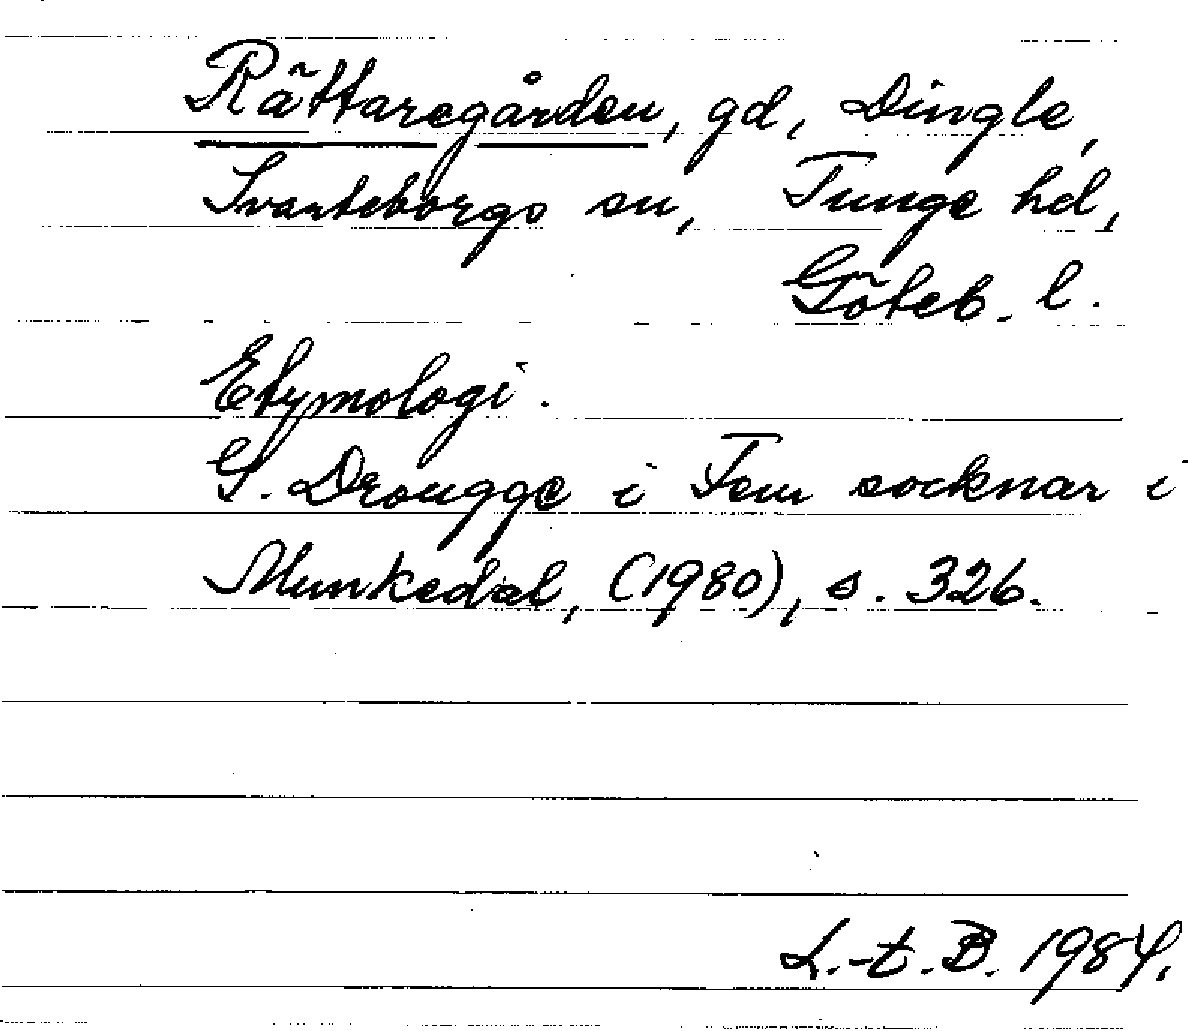 Rättaregården, gd, Dingle,
Svarteborgs sn, Tunge hd,
Göteb. l.
Etymologi.
G. Drougge i Fem socknar i
Munkedal, (1980), s. 326.
L.-t. B. 1984.